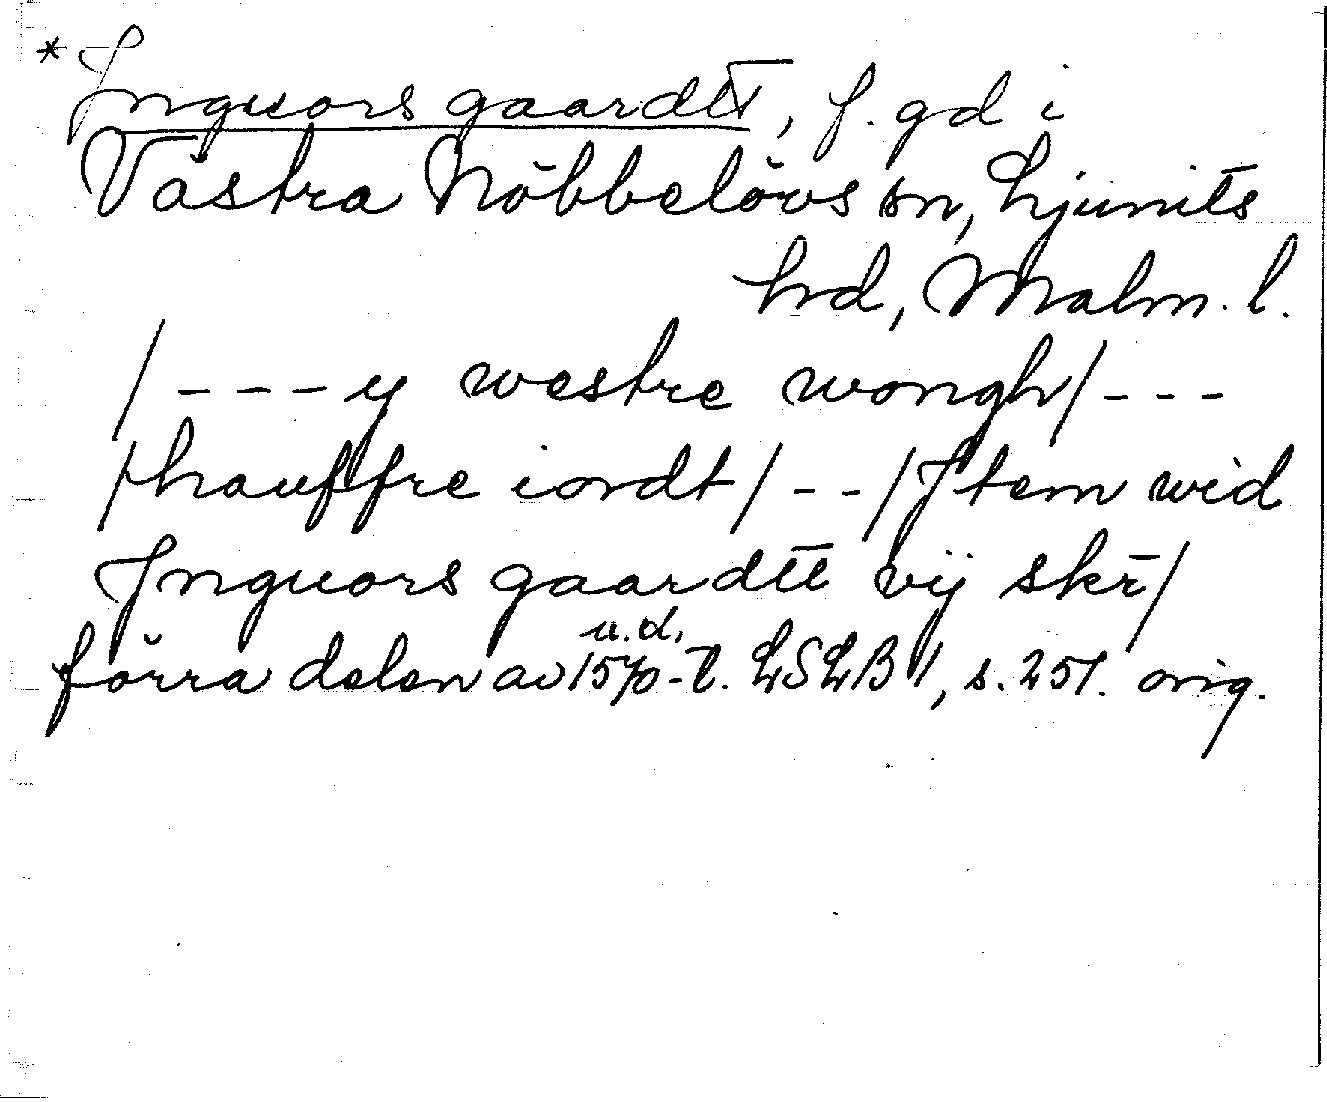 * Jnguors gaardtt, f. gd i
Västra Nöbbelövs sn, Ljunits
hrd, Malm. l.
/---y westre wongh/---
/hauffre iordt/--/Jtem wid
Jnguors gaardtt vij skr̄/
u.d.
förra delen av 1570-t. LSLB 1, s. 251. orig.